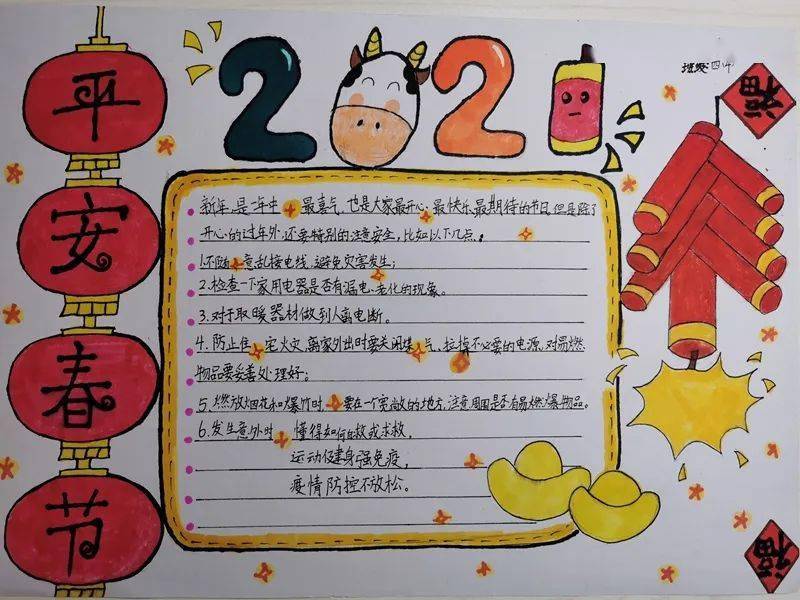 平
安
春
节
202
班级四4
福
新年,是一年中最喜气,也是大家最开心,最快乐,最期待的节日,但是除了
开心的过年外,还要特别的注意安全,比如以下几点:
1.不随意乱接电线,避免灾害发生;
2.检查一下家用电器是否有漏电、老化的现象。
3.对于取暖器材做到人离电断。
4.防止住宅火灾,离家外出时要关闭煤气,拉掉不必要的电源,对易燃
物品要妥善处理好。
5.燃放烟花和爆竹时,要在一个宽敞的地方,注意周围是否有易燃爆物品。
6.发生意外时,懂得如何自救或求救,
运动健身强免疫,
疫情防控不放松。
福